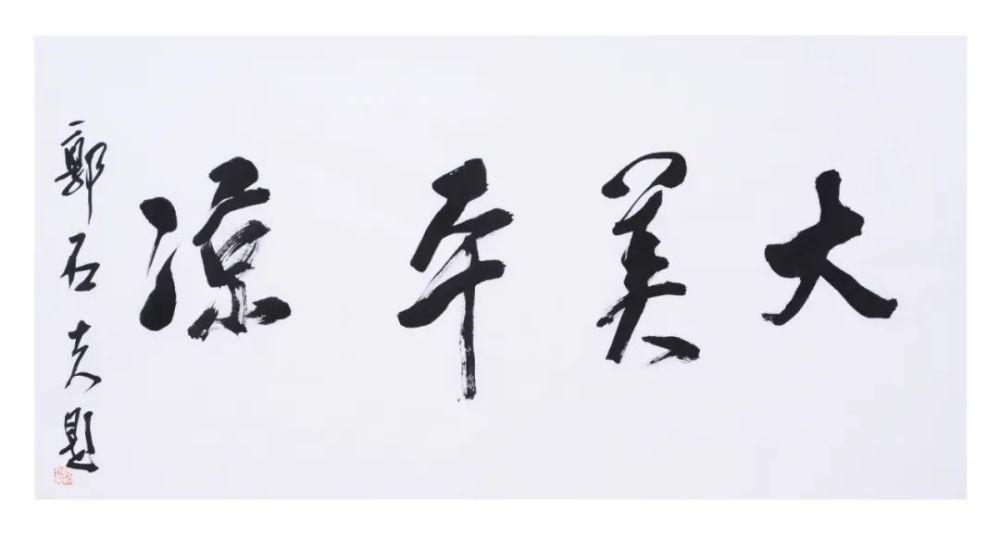 大美平凉
郭石夫题